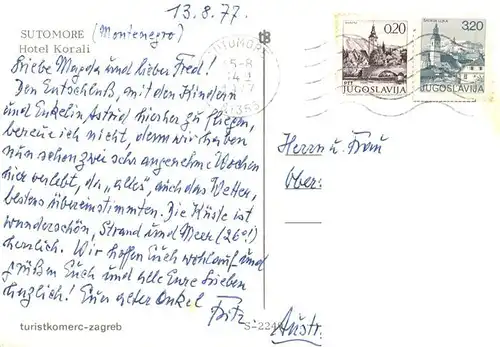 13.8.77.
SUTOMORE (Montenegro)
Hotel Korali
Liebe Magda und lieber Fred!
Den Entschluß, mit den Kindern
und Enkelin Astrid hierher zu fliegen,
bereue ich nicht, denn wir haben
nun schon zwei sehr angenehme Wochen
hier verlebt, da „alles", auch das Wetter,
bestens übereinstimmten. Die Küste ist
wunderschön, Strand und Meer (26°!)
herrlich. Wir hoffen Euch wohlauf und
grüßen Euch und alle Eure Lieben
herzlich! Euer alter Onkel
Fritz.
turistkomerc-zagreb
0,20
JUGOSLAVIJA
3,20
JUGOSLAVIJA
Herrn u. Frau
Ober:
Austr.